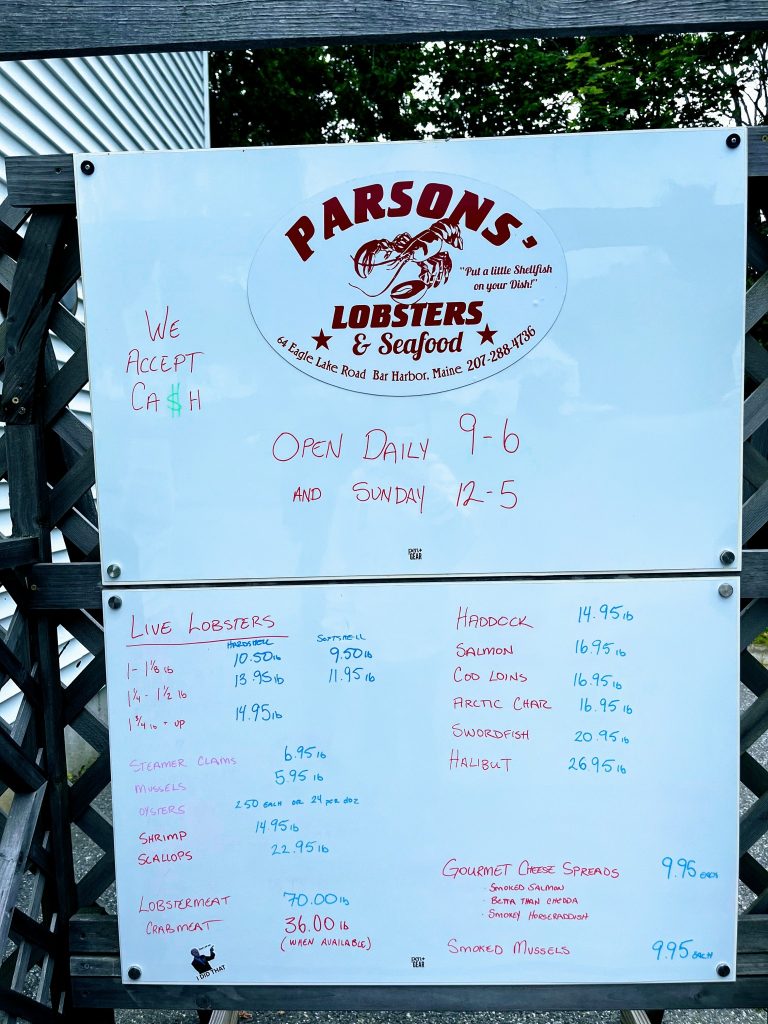 PARSONS'
"Put a little Shellfish
on your Dish!"
LOBSTERS
& Seafood
64 Eagle Lake Road Bar Harbor, Maine 207-288-4736
WE
ACCEPT
CA$H
OPEN DAILY 9-6
AND SUNDAY 12-5
GEAR
LIVE LOBSTERS
HARDSHELL SOFTSHELL
1 - 1 1/8 lb 10.50 lb 9.50 lb
1 1/4 - 1 1/2 lb 13.95 lb 11.95 lb
1 3/4 lb - UP 14.95 lb
STEAMER CLAMS 6.95 lb
MUSSELS 5.95 lb
OYSTERS 2.50 EACH OR 24 PER DOZ
SHRIMP 14.95 lb
SCALLOPS 22.95 lb
LOBSTERMEAT 70.00 lb
CRABMEAT 36.00 lb
(WHEN AVAILABLE)
I DID THAT
HADDOCK 14.95 lb
SALMON 16.95 lb
COD LOINS 16.95 lb
ARCTIC CHAR 16.95 lb
SWORDFISH 20.95 lb
HALIBUT 26.95 lb
GOURMET CHEESE SPREADS 9.95 EACH
· SMOKED SALMON
· BETTA THAN CHEDDA
· SMOKEY HORSERADDISH
SMOKED MUSSELS 9.95 EACH
GEAR